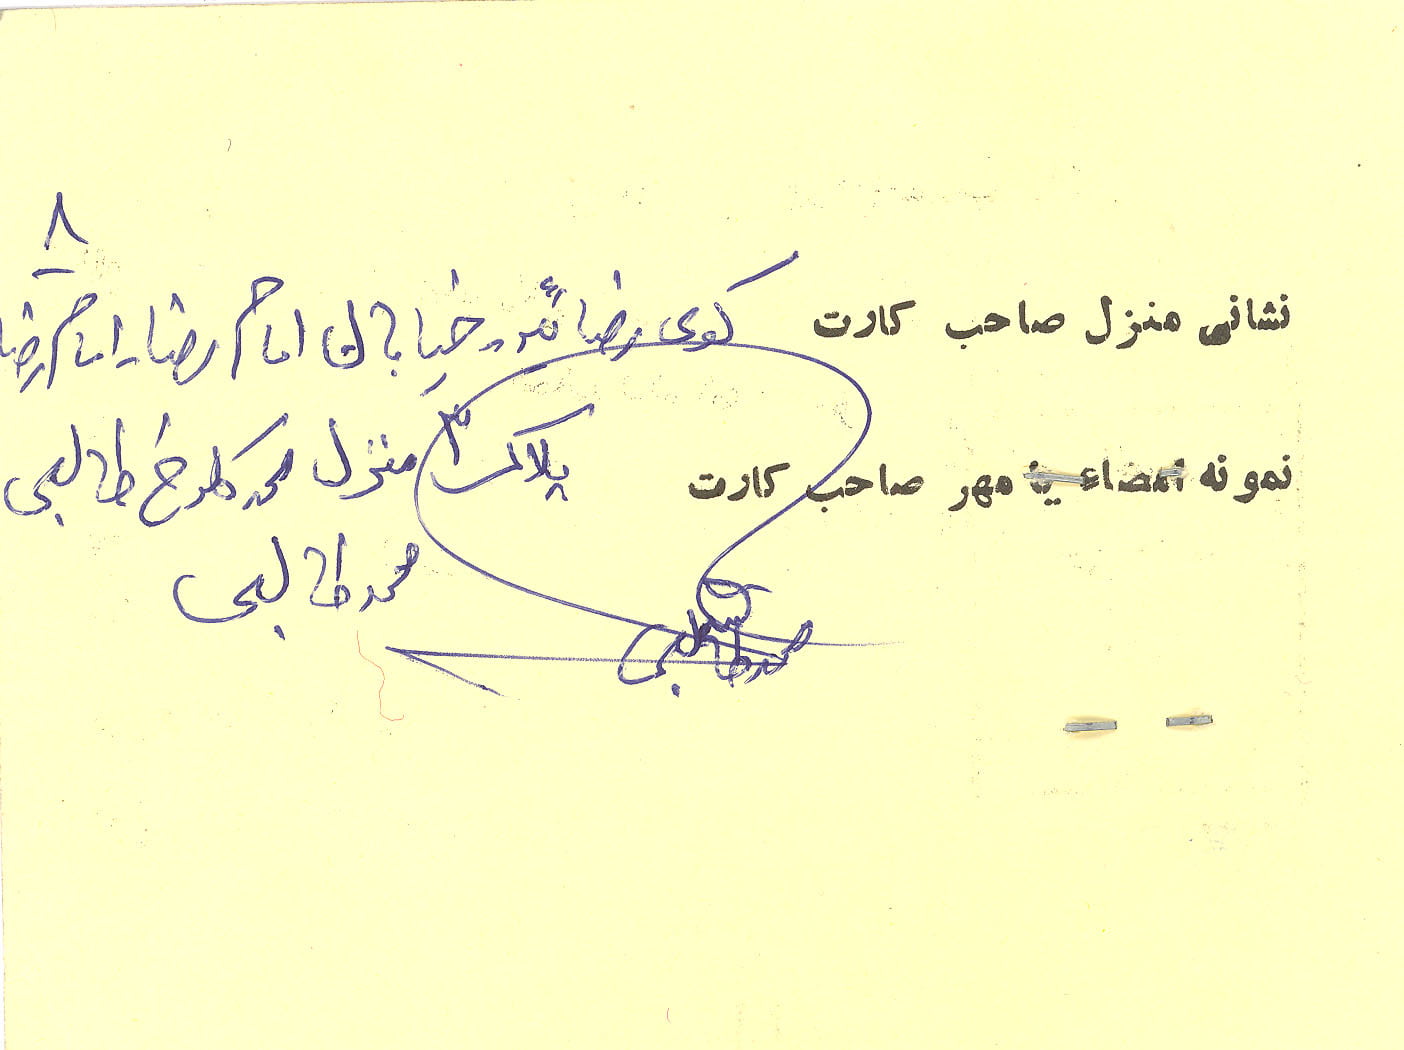 نشانی منزل صاحب کارت کوی رضائیه - خیابان امام رضا - امام رضا ۸
نمونه امضاء یا مهر صاحب کارت پلاک ۳ منزل محمد گلرخ طالبی
محمد طالبی
محمد طالبی